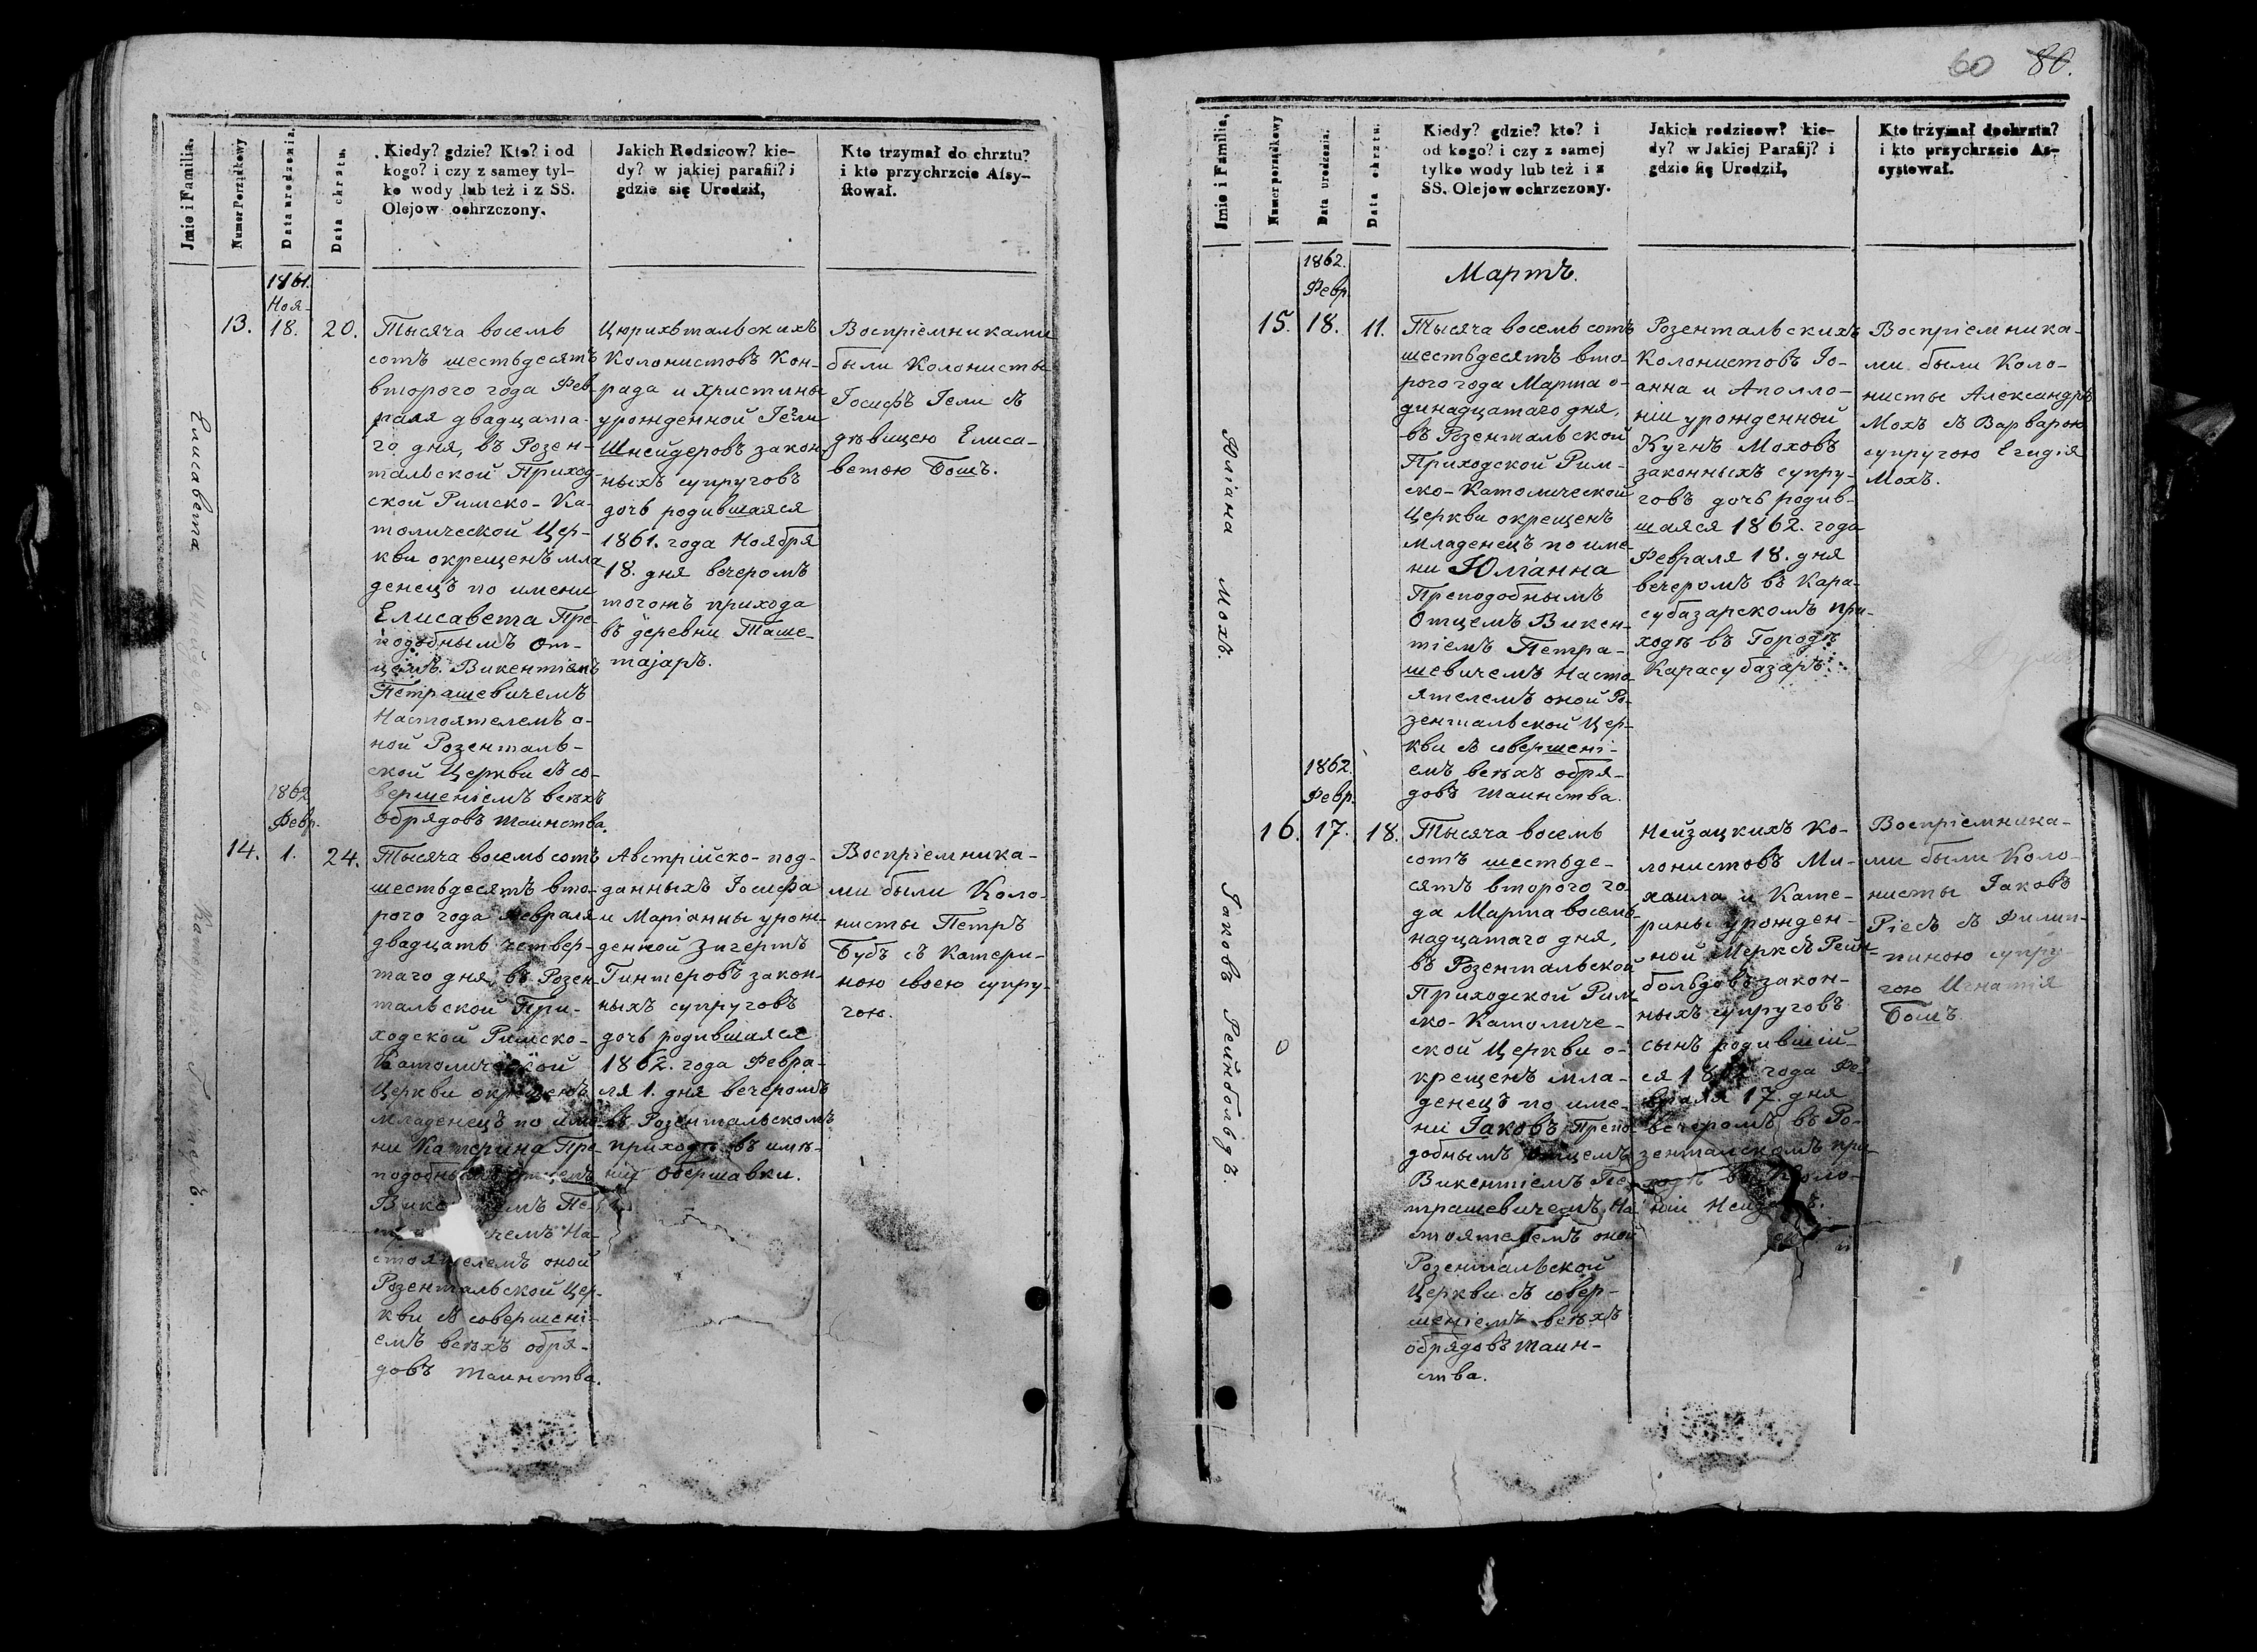 60 80.
Jmie i Familia.
Numer Porządkowy
Data urodzenia.
Data chrztu.
Kiedy? gdzie? Kto? i od
kogo? i czy z samey tyl-
ko wody lub też i z SS.
Olejow ochrzczony.
Jakich Rodzicow? kie-
dy? w jakiej parafii? i
gdzie się Urodził,
Kto trzymał do chrztu?
i kto przychrzcie Afsy-
stował.
Елисавета Шнейдеръ.
1861.
Ноя-
13. 18. 20.
Тысяча восемь
сотъ шестьдесятъ
второго года Фев-
раля двадцата-
го дня, въ Розен-
тальской Приход-
ской Римско-Ка-
толической Цер-
кви окрещенъ мла
денецъ по имени
Елисавета Пре-
подобнымъ От-
цемъ Викентіемъ
Петрашевичемъ
Настоятелемъ о-
ной Розенталь-
ской Церкви съ со-
вершеніемъ всѣхъ
обрядовъ таинства.
Цюрихтальскихъ
Колонистовъ Кон-
рада и Христины
урожденной Гели
Шнейдеровъ закон-
ныхъ супруговъ
дочь родившаяся
1861. года Ноября
18. дня вечеромъ
тогожъ прихода
въ деревни Таше-
таjаръ.
Воспріемниками
были Колонисты
Іосифъ Гели съ
дѣвицею Елиса-
ветою Бошъ.
Катерина
1862
Февр.
14. 1. 24.
Тысяча восемь сотъ
шестьдесятъ вто-
рого года Февраля
двадцать четвер-
таго дня, въ Розен-
тальской При-
ходской Римско-
Католической
Церкви окрещенъ
младенецъ по име-
ни Катерина Пре-
подобнымъ Отцемъ
Пе-
На-
стоятелемъ оной
Розентальской Цер-
кви съ совершені-
емъ всѣхъ обря-
довъ таинства.
Австрійско-под-
данныхъ Іосифа
и Маріанны урож-
денной Зигертъ
Гинтеровъ закон-
ныхъ супруговъ
дочь родившаяся
1862. года Февра-
ля 1. дня вечеромъ
въ Розентальскомъ
приходѣ въ имѣ-
ніи Обершавки.
Воспріемника-
ми были Коло-
нисты Петръ
Бубъ съ Катери-
ною своею супру-
гою.
Jmie i Familia,
Numer porządkowy
Data urodzenia.
Data chrztu.
Kiedy? gdzie? kto? i
od kogo? i czy z samej
tylko wody lub też i z
SS. Olejow ochrzczony.
Jakich rodzicow? kie-
dy? w Jakiej Parafij? i
gdzie się Urodził,
Kto trzymał dochrztu?
i kto przychrzcie As-
systował.
Юліана Мохъ.
1862.
Февр.
Мартъ.
15. 18. 11.
Тысяча восемь сотъ
шестьдесятъ вто-
рого года Марта о-
динадцатаго дня,
въ Розентальской
Приходской Рим-
ско-Католической
Церкви окрещенъ
младенецъ по име-
ни Юліанна
Преподобнымъ
Отцемъ Викен-
тіемъ Петра-
шевичемъ Насто-
ятелемъ оной Ро-
зентальской Цер-
кви съ совершені-
емъ всѣхъ обря-
довъ таинства.
Розентальскихъ
Колонистовъ Іо-
анна и Аполло-
ніи урожденной
Кугнъ Моховъ
законныхъ супру-
говъ дочь родив-
шаяся 1862. года
Февраля 18. дня
вечеромъ въ Кара-
субазарскомъ при-
ходѣ въ Городѣ
Карасубазаръ.
Воспріемника-
ми были Коло-
нисты Александръ
Мохъ съ Варварою
супругою Егидія
Мохъ.
Іаковъ Рейнболъдъ.
1862.
Февр.
16. 17. 18.
Тысяча восемь
сотъ шестьде-
сятъ второго го-
да Марта восемь-
надцатаго дня,
въ Розентальской
Приходской Рим-
ско-Католиче-
ской Церкви о-
крещенъ мла-
денецъ по име-
ни Іаковъ Препо-
добнымъ Отцемъ
Викентіемъ Пе-
трашевичемъ На-
стоятелемъ оной
Розентальской
Церкви съ совер-
шеніемъ всѣхъ
обрядовъ таин-
ства.
Нейзацкихъ Ко-
лонистовъ Ми-
хаила и Кате-
рины урожден-
ной Меркъ Рейн-
больдовъ закон-
ныхъ супруговъ
сынъ родившій-
ся 1862 года Фе-
враля 17. дня
вечеромъ въ Ро-
зентальскомъ при-
ходѣ въ Коло-
ніи
Воспріемника-
ми были Коло-
нисты Іаковъ
Рісбъ съ Филип-
пиною супру-
гою Игнатія
Бошъ.